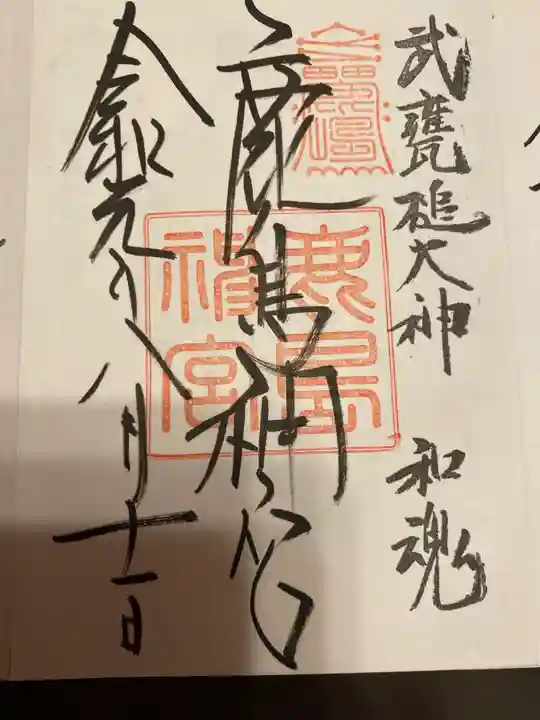 武甕槌大神 和魂
鹿島神宮
令和元年八月十一日
鹿島神宮